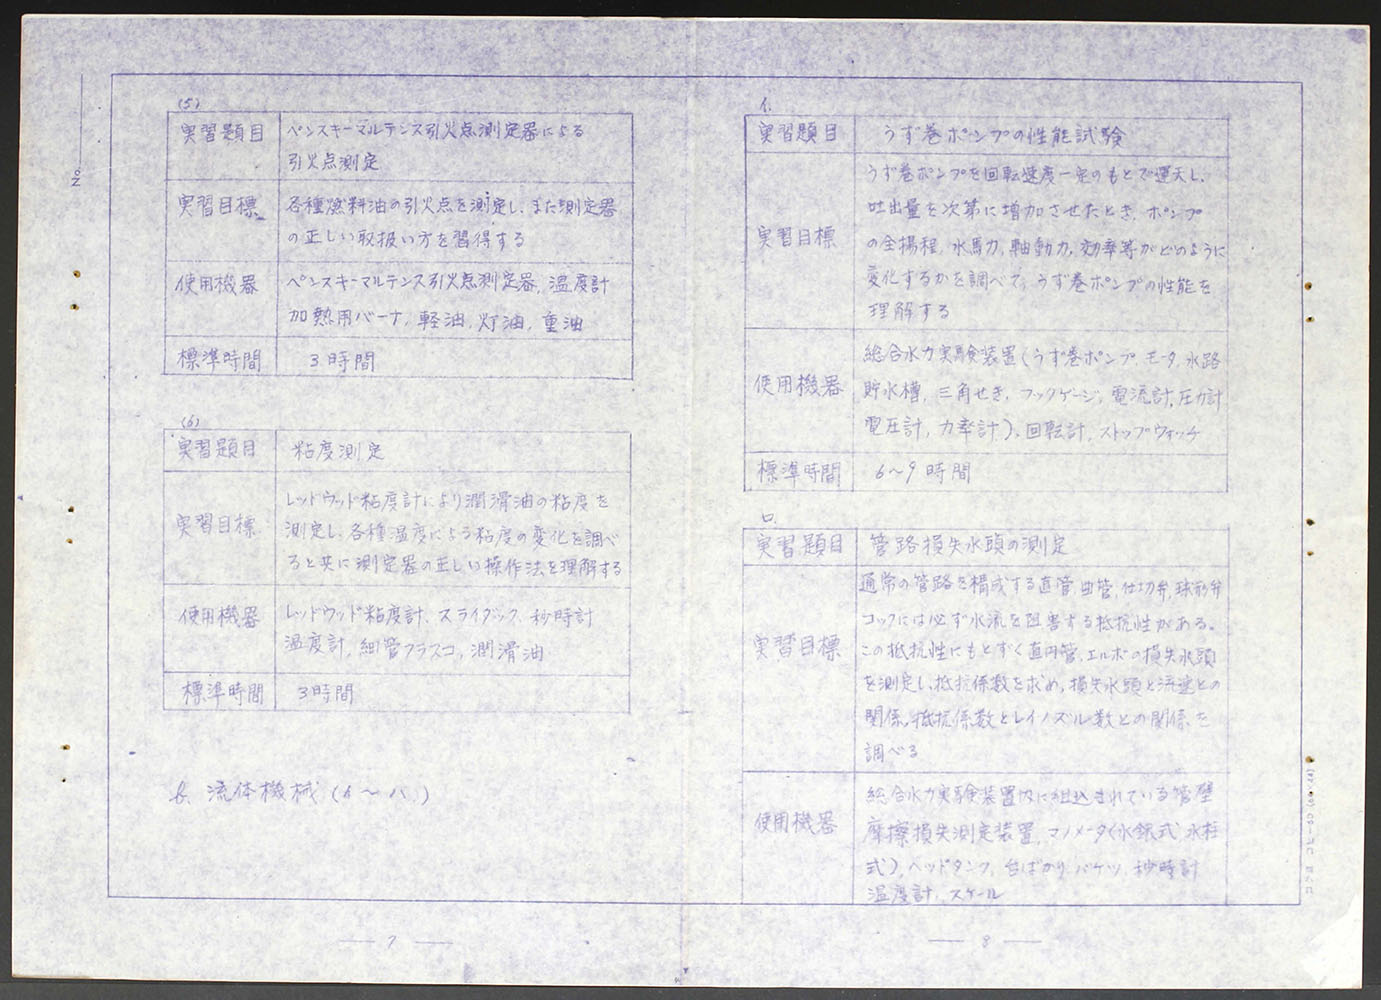 No.
(5)
実習題目
ペンスキーマルテンス引火点測定器による
引火点測定
実習目標
各種燃料油の引火点を測定し、また測定器
の正しい取扱い方を習得する
使用機器
ペンスキーマルテンス引火点測定器, 温度計
加熱用バーナ, 軽油, 灯油, 重油
標準時間
3時間
(6)
実習題目
粘度測定
実習目標
レッドウッド粘度計により潤滑油の粘度を
測定し、各種温度による粘度の変化を調べ
ると共に測定器の正しい操作法を理解する
使用機器
レッドウッド粘度計、スライダック、秒時計
温度計, 細管フラスコ, 潤滑油
標準時間
3時間
流体機械 (イ～ハ)
7
イ.
実習題目
うず巻ポンプの性能試験
実習目標
うず巻ポンプを回転速度一定のもとで運天し、
吐出量を次第に増加させたとき、ポンプ
の全揚程, 水馬力, 軸動力, 効率等がどのように
変化するかを調べて、うず巻ポンプの性能を
理解する
使用機器
総合水力実験装置(うず巻ポンプ, モータ, 水路
貯水槽, 三角せき, フックゲージ, 電流計, 圧力計
電圧計, 力率計), 回転計, ストップウォッチ
標準時間
6～9時間
ロ.
実習題目
管路損失水頭の測定
実習目標
通常の管路を構成する直管, 曲管, 仕切弁, 球形弁
コックには必ず水流を阻害する抵抗性がある。
この抵抗性にもとずく直円管, エルボの損失水頭
を測定し、抵抗係数を求め, 損失水頭と流速との
関係, 抵抗係数とレイノズル数との関係を
調べる
使用機器
総合水力実験装置内に組込まれている管壁
摩擦損失測定装置, マノメータ(水銀式, 水柱
式), ヘッドタンク, 台ばかり, バケツ, 秒時計
温度計, スケール
8